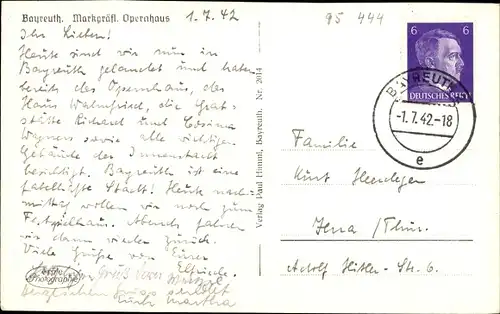 Bayreuth. Markgräfl. Opernhaus
1.7.42
95 444
Ihr Lieben!
Heute sind wir nun in
Bayreuth gelandet und haben
bereits das Opernhaus, das
Haus Wahnfried, die Grab-
stätte Richard und Cosima
Wagners sowie alle wichtigen
Gebäude der Innenstadt
besichtigt. Bayreuth ist eine
fabelhafte Stadt! Heute nach-
mittag wollen wir noch zum
Festspielhaus. Abends fahren
wir dann wieder zurück.
Viele Grüße von Eurer
Elfriede.
Gruß Euer
Herzlichen Gruß sendet
Euch Martha
Echte Photographie
Verlag Paul Himml, Bayreuth. Nr. 2014
6 6
DEUTSCHES REICH
BAYREUTH
-1.7.42-18
e
Familie
Kurt
Jena /Thür.
Adolf Hitler-Str. 6.